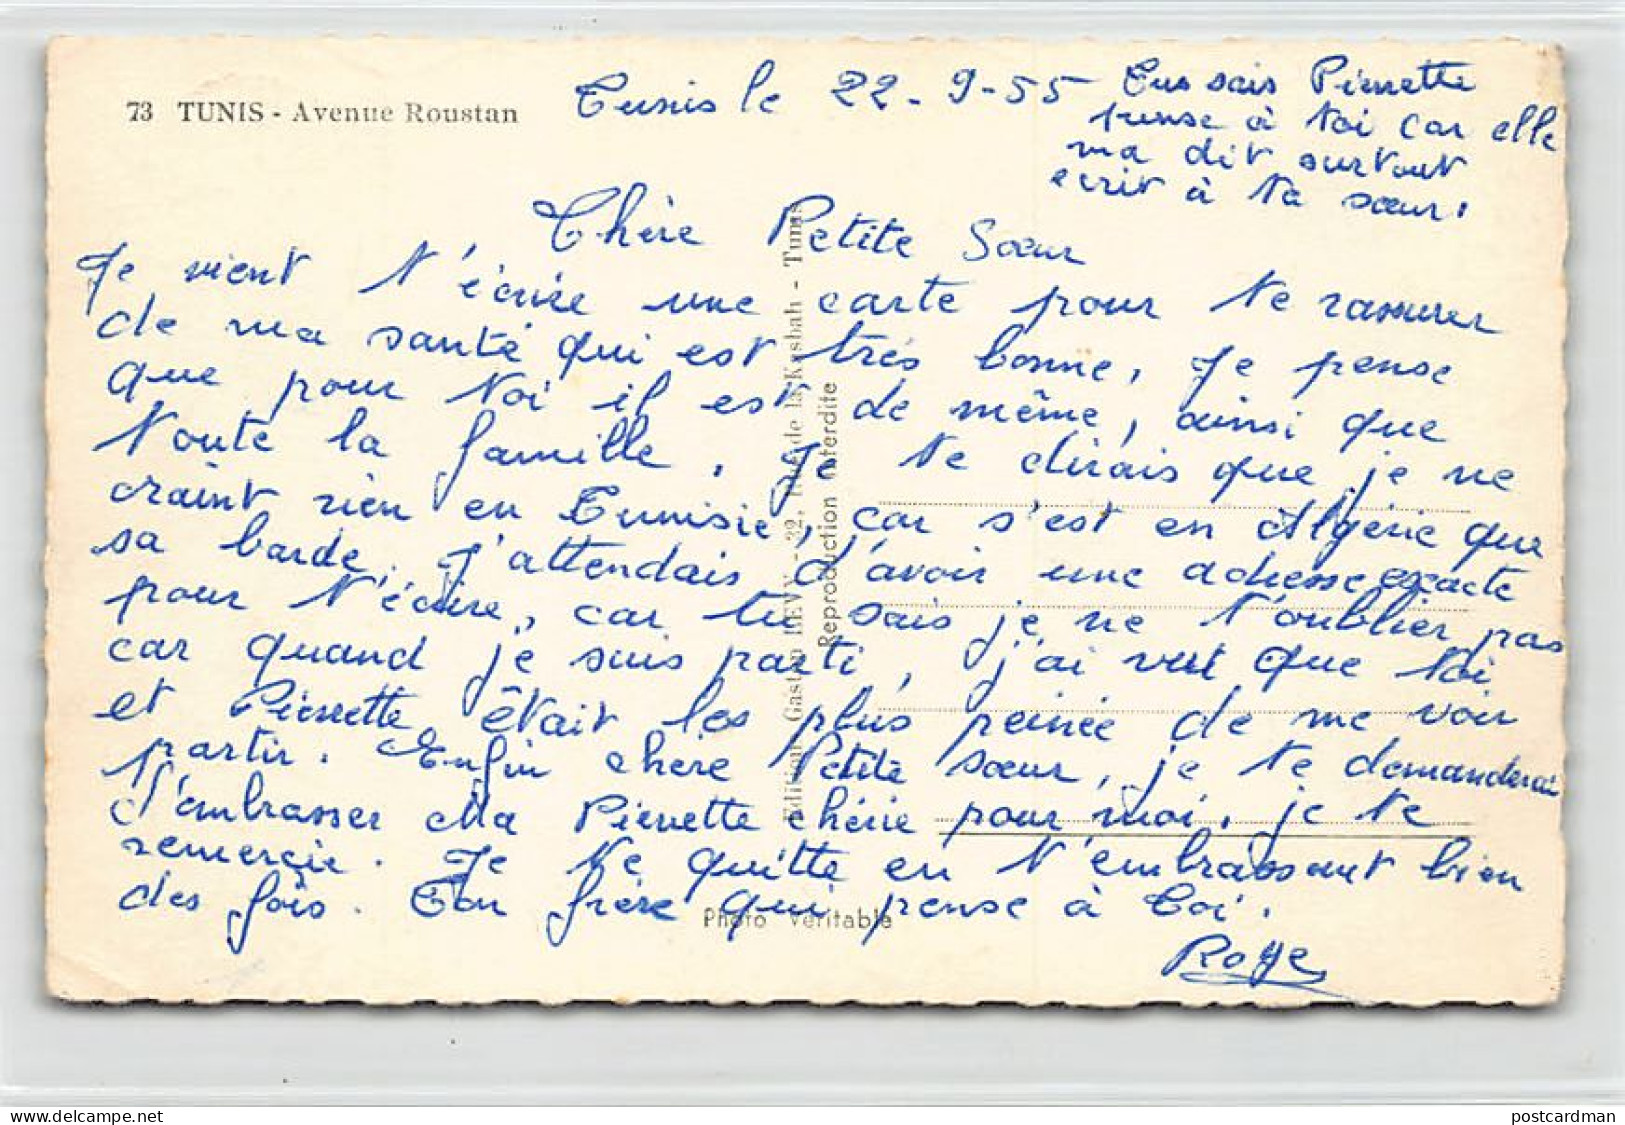 73 TUNIS - Avenue Roustan
Tunis le 22-9-55
Tus sais Pierrette
pense à toi car elle
ma dit surtout
ecrit à ta sœur.
Chère Petite Sœur
Je vient t'écrire une carte pour te rassurer
de ma santé qui est très bonne, je pense
que pour toi il est de même, ainsi que
toute la famille. Je te dirais que je ne
craint rien en Tunisie, car s'est en Algérie que
sa barde. J'attendais d'avoir une adresse exacte
pour t'écrire, car tu sais je ne t'oublier pas
car quand je suis parti, j'ai vut que toi
et Pierrette êtait les plus peinée de me voir
partir. Enfin chère Petite sœur, je te demanderai
d'embrasser Ma Pierrette chérie pour moi, je te
remercie. Je te quitte en t'embrassant bien
des fois. Ton frère qui pense à toi.
Roge
Edition Gaston LEVY - 32, Rue de la Kasbah - Tunis
Reproduction interdite
Photo Véritable
www.delcampe.net
postcardman